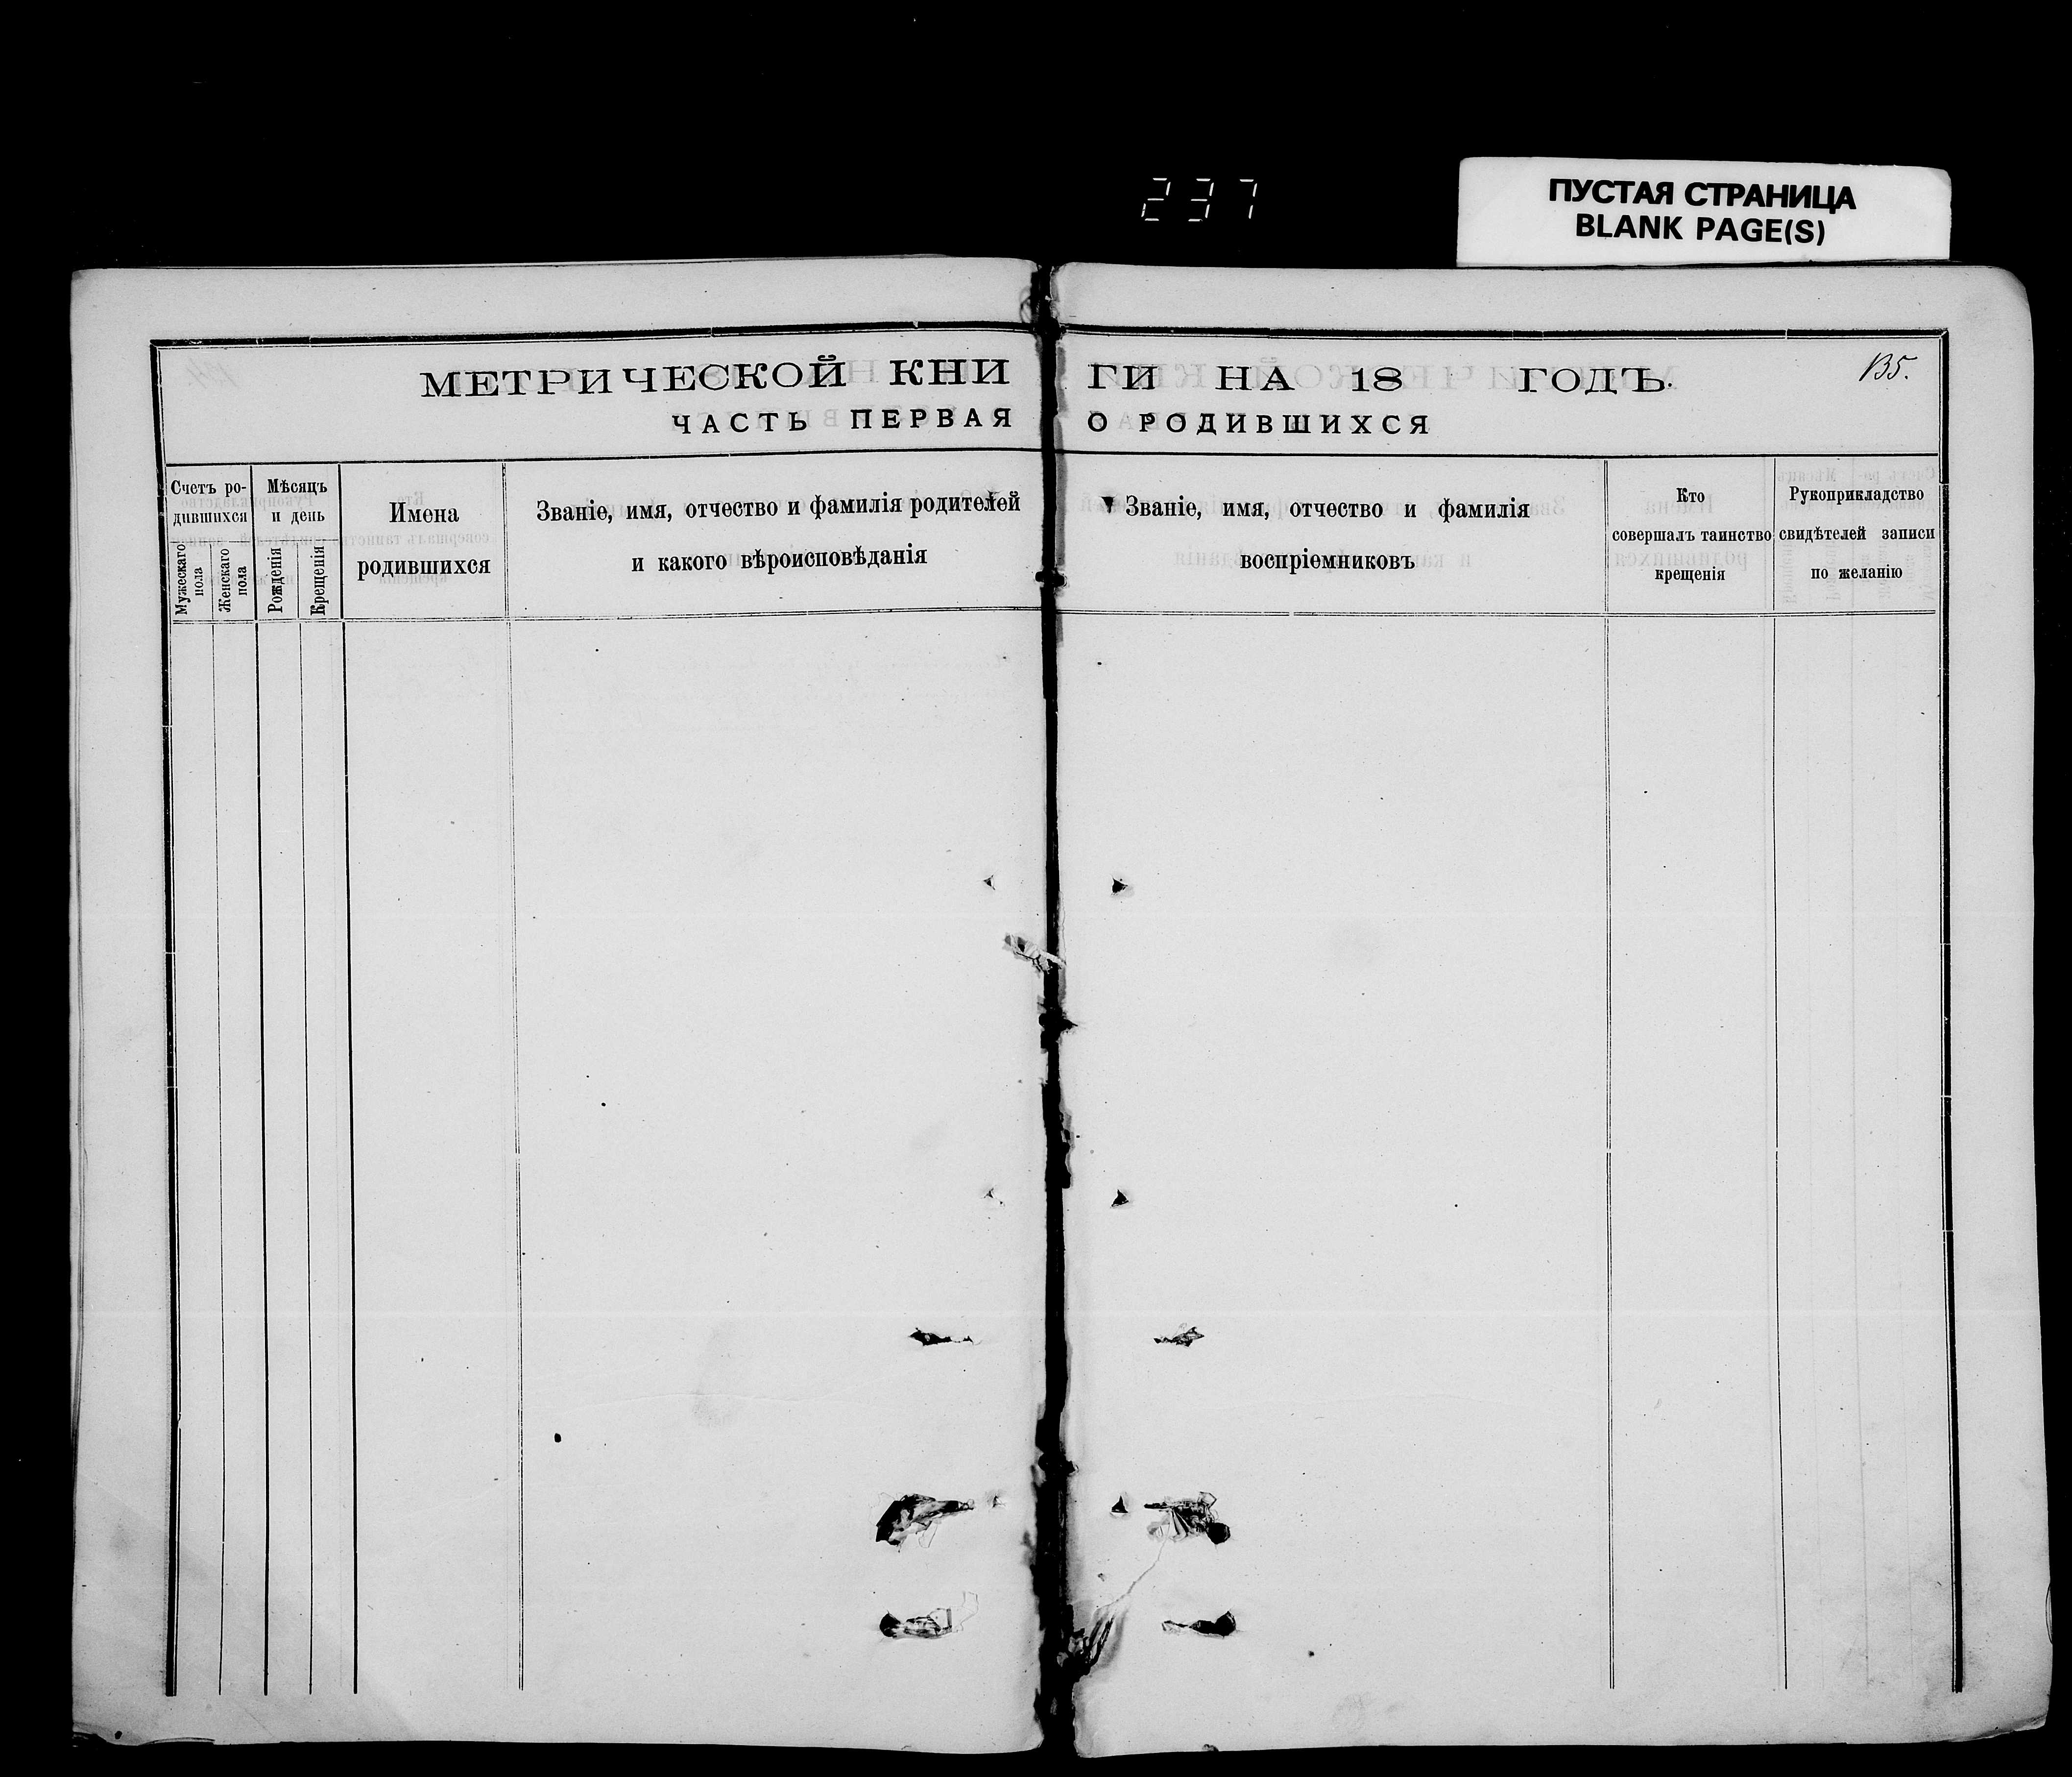 237
ПУСТАЯ СТРАНИЦА
BLANK PAGE(S)
МЕТРИЧЕСКОЙ КНИ ГИ НА 18 ГОДЪ.
135.
ЧАСТЬ ПЕРВАЯ О РОДИВШИХСЯ
Счетъ ро-
дившихся
Мужескаго
пола
Женскаго
пола
Мѣсяцъ
и день
Рожденія
Крещенія
Имена
родившихся
Званіе, имя, отчество и фамилія родителей
и какого вѣроисповѣданія
Званіе, имя, отчество и фамилія
воспріемниковъ
Кто
совершалъ таинство
крещенія
Рукоприкладство
свидѣтелей записи
по желанію